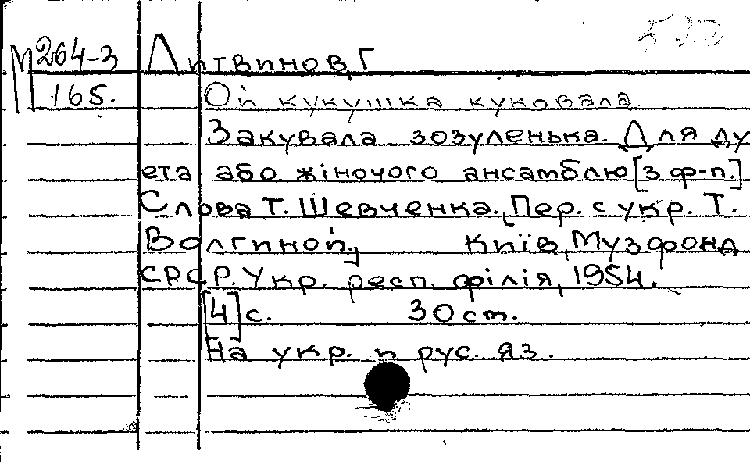 М 264-3 Литвинов, Г
165. Ой кукушка куковала
Закувала зозуленька. Для ду
ета або жіночого ансамблю [з ф-п.]
Слова Т. Шевченка. [Пер. с укр. Т.
Волгиной.] Київ, Музфонд
СРСР. Укр. респ. філія, 1954.
[4] с. 30 ст.
На укр. и рус. яз.